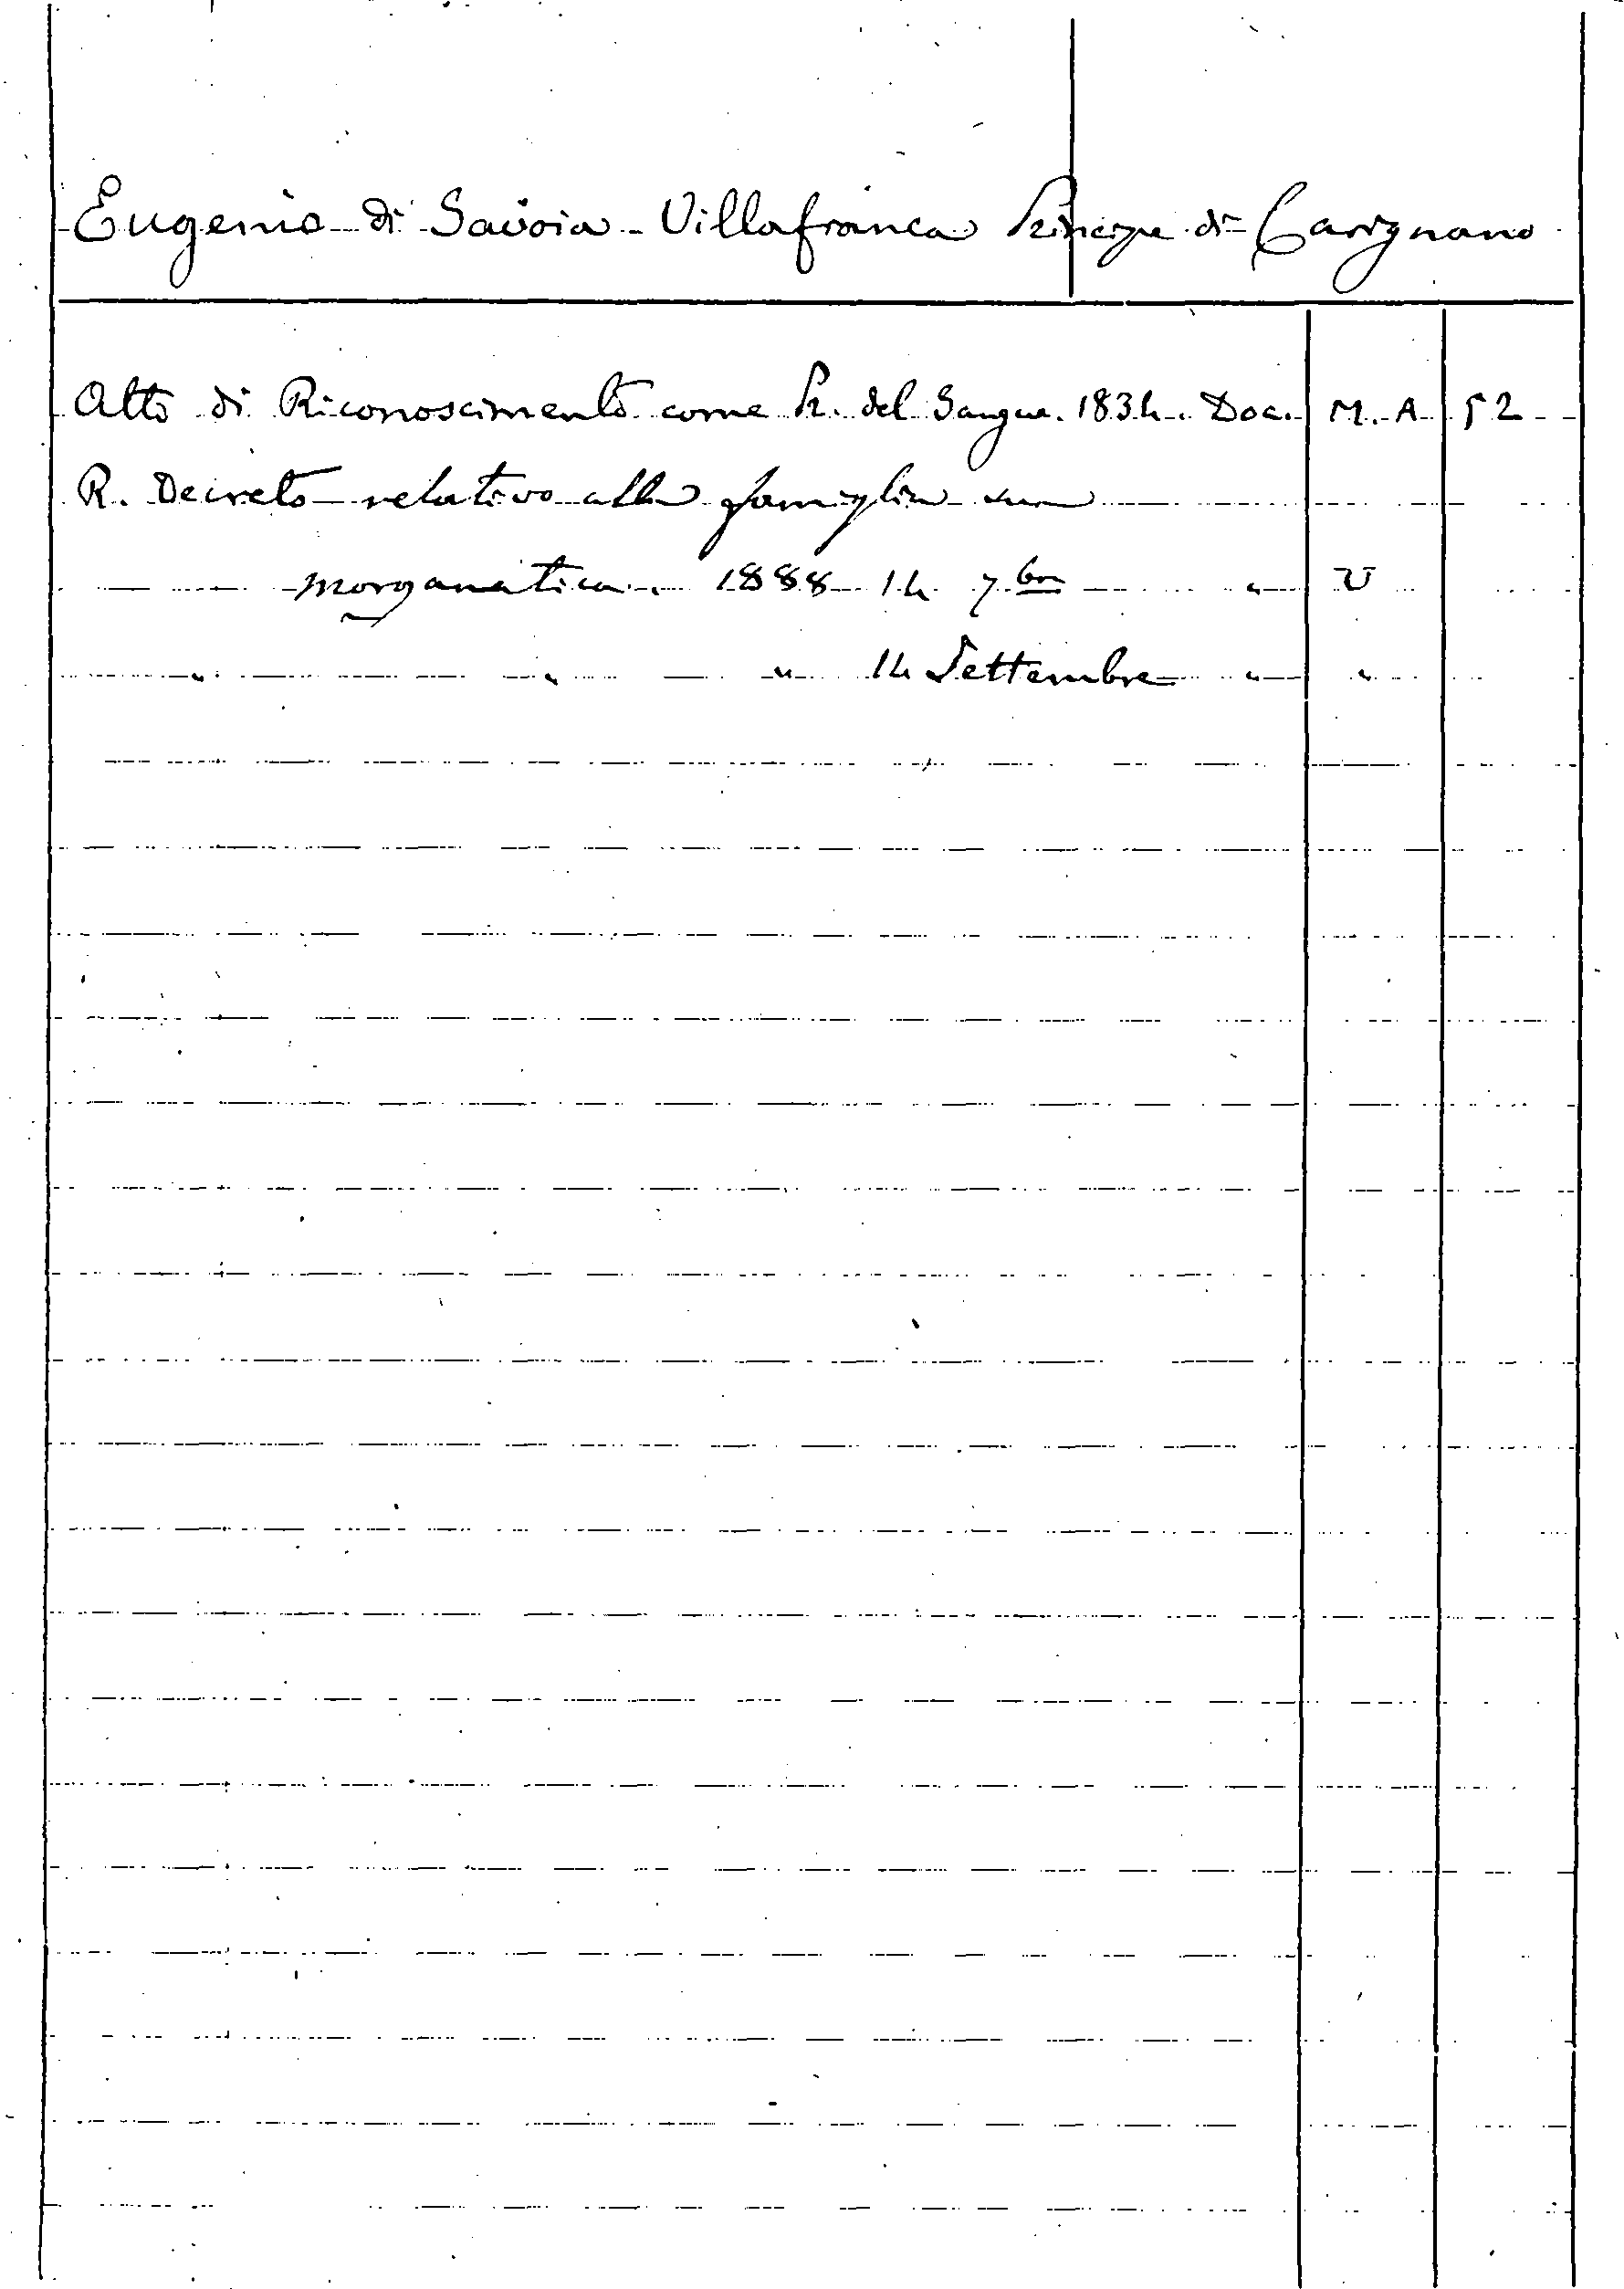 Eugenio di Savoia-Villafranca Principe di Carignano
Atto di Riconoscimento come Pr. del Sangue. 1834. Doc. M. A 52
R. Decreto relativo alla famiglia sua
morganatica. 1888 14 7bre " V
" " " 14 Settembre " "